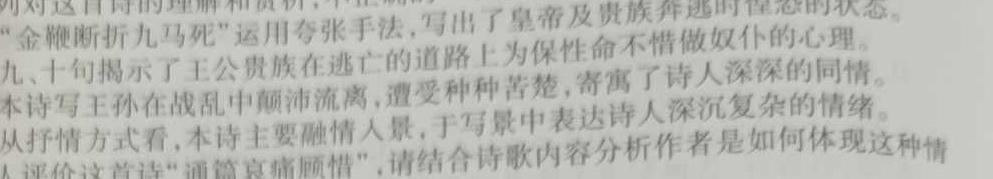 列对这首诗的理解和赏析,不正确的
“金鞭断折九马死”运用夸张手法,写出了皇帝及贵族奔逃时惶恐的状态。
九、十句揭示了王公贵族在逃亡的道路上为保性命不惜做奴仆的心理。
本诗写王孙在战乱中颠沛流离,遭受种种苦楚,寄寓了诗人深深的同情。
从抒情方式看,本诗主要融情入景,于写景中表达诗人深沉复杂的情绪。
人评价这首诗“通篇哀痛顾惜”,请结合诗歌内容分析作者是如何体现这种情